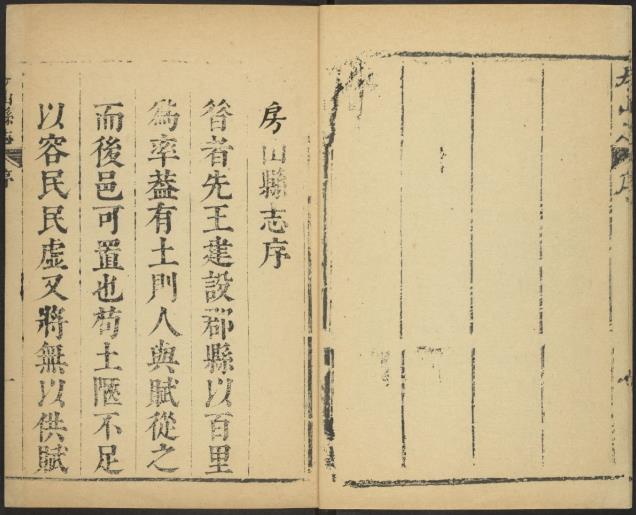 房山縣志序
昝者先王建設郡縣以百里
為率葢有土則人與賦從之
而後邑可置也茍土陿不足
以容民民虛又將無以供賦
房山縣志
序
一